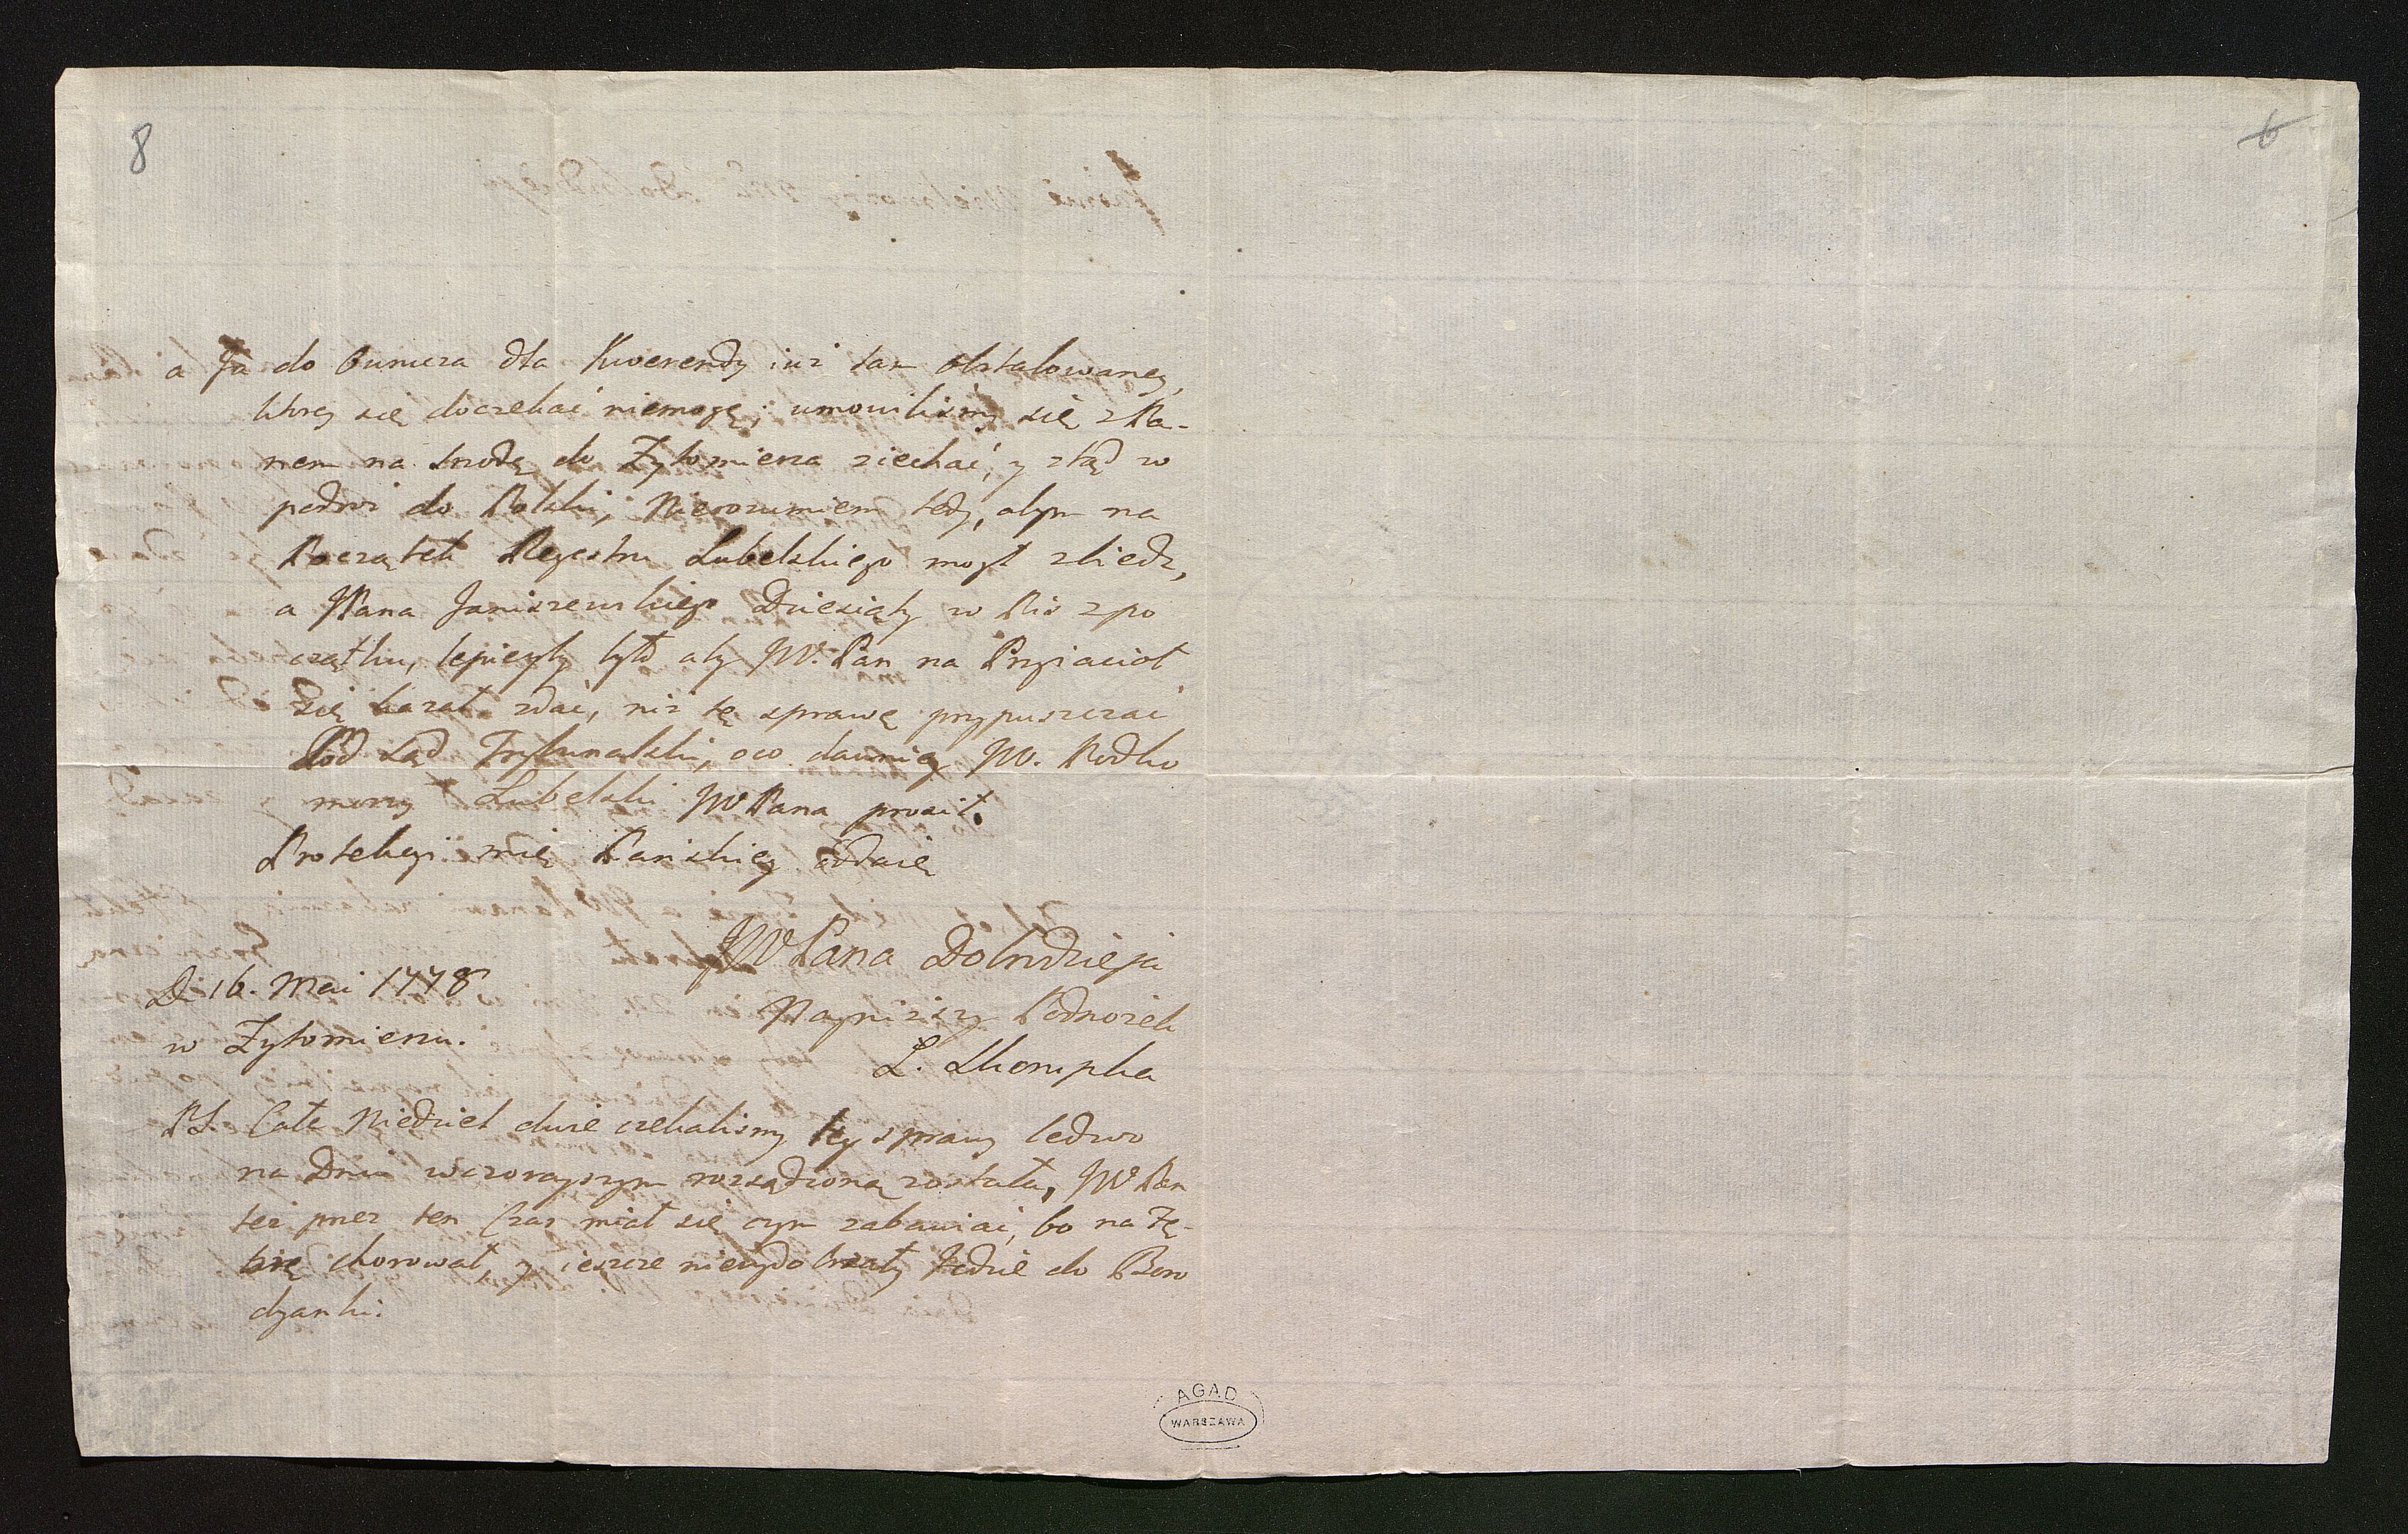 8
6
a Ja do Owrucza dla Kwerendy iuż tam obstalowaney,
ktorey się doczekać niemogę; umowiliśmy się z Pa-
nem na srzodę do Zytomierza ziechać, y ztąd w
pedroż do Polski, Nierozumiem tedy, abym na
Początek Regestru Lubelskiego mogł zbiedz,
a JPana Janiszewskiego Dziesiąty w Pis z po
czątku, lepieyby było aby JW. Pan na Przyiacioł
Się kazał zdać, niż tę sprawę przypuszczać
Pod Sąd Trybunalski, oco dawniey JW. Podko
morzy Lubelski JW Pana prosił.
Protekcyi mię Pańskiey oddaię
JW Pana Dobrodzieja
Nayniższy Podnożek
L. Skompska
D. 16. Mai 1778
w Zytomierzu.
PS. Całe Niedziel dwie czekalismy tey sprawy ledwo
na Dniu wczorayszym rozsądzoną została, JW Pan
też przez ten Czas miał się czym zabawiać, bo na Zę-
brę chorował, y ieszcze niewydobrzały Jedzie do Boro
dzanki.
AGAD
WARSZAWA